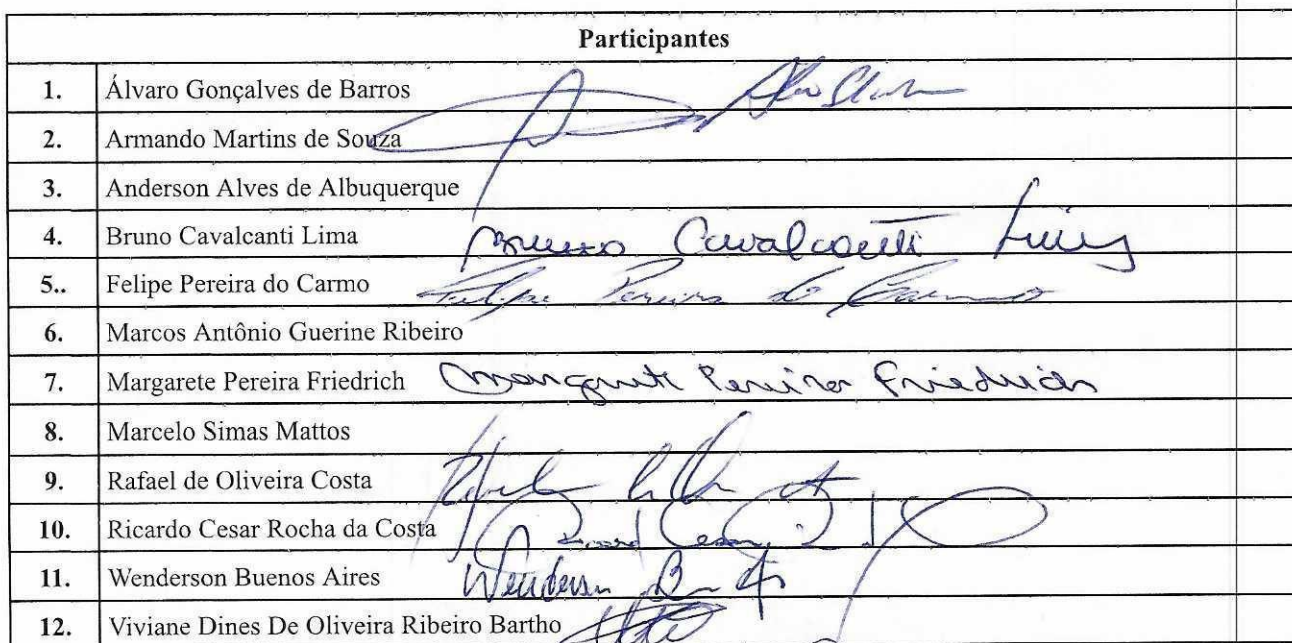 Participantes
1. Álvaro Gonçalves de Barros
2. Armando Martins de Souza
3. Anderson Alves de Albuquerque
4. Bruno Cavalcanti Lima Bruno Cavalcanti Lima
5.. Felipe Pereira do Carmo Felipe Pereira do Carmo
6. Marcos Antônio Guerine Ribeiro
7. Margarete Pereira Friedrich Margarete Pereira Friedrich
8. Marcelo Simas Mattos
9. Rafael de Oliveira Costa
10. Ricardo Cesar Rocha da Costa Ricardo Cesar
11. Wenderson Buenos Aires Wenderson
12. Viviane Dines De Oliveira Ribeiro Bartho